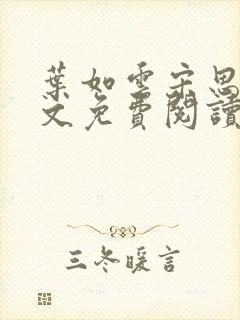 葉如雲宋思
文免費閱讀
三冬暖言